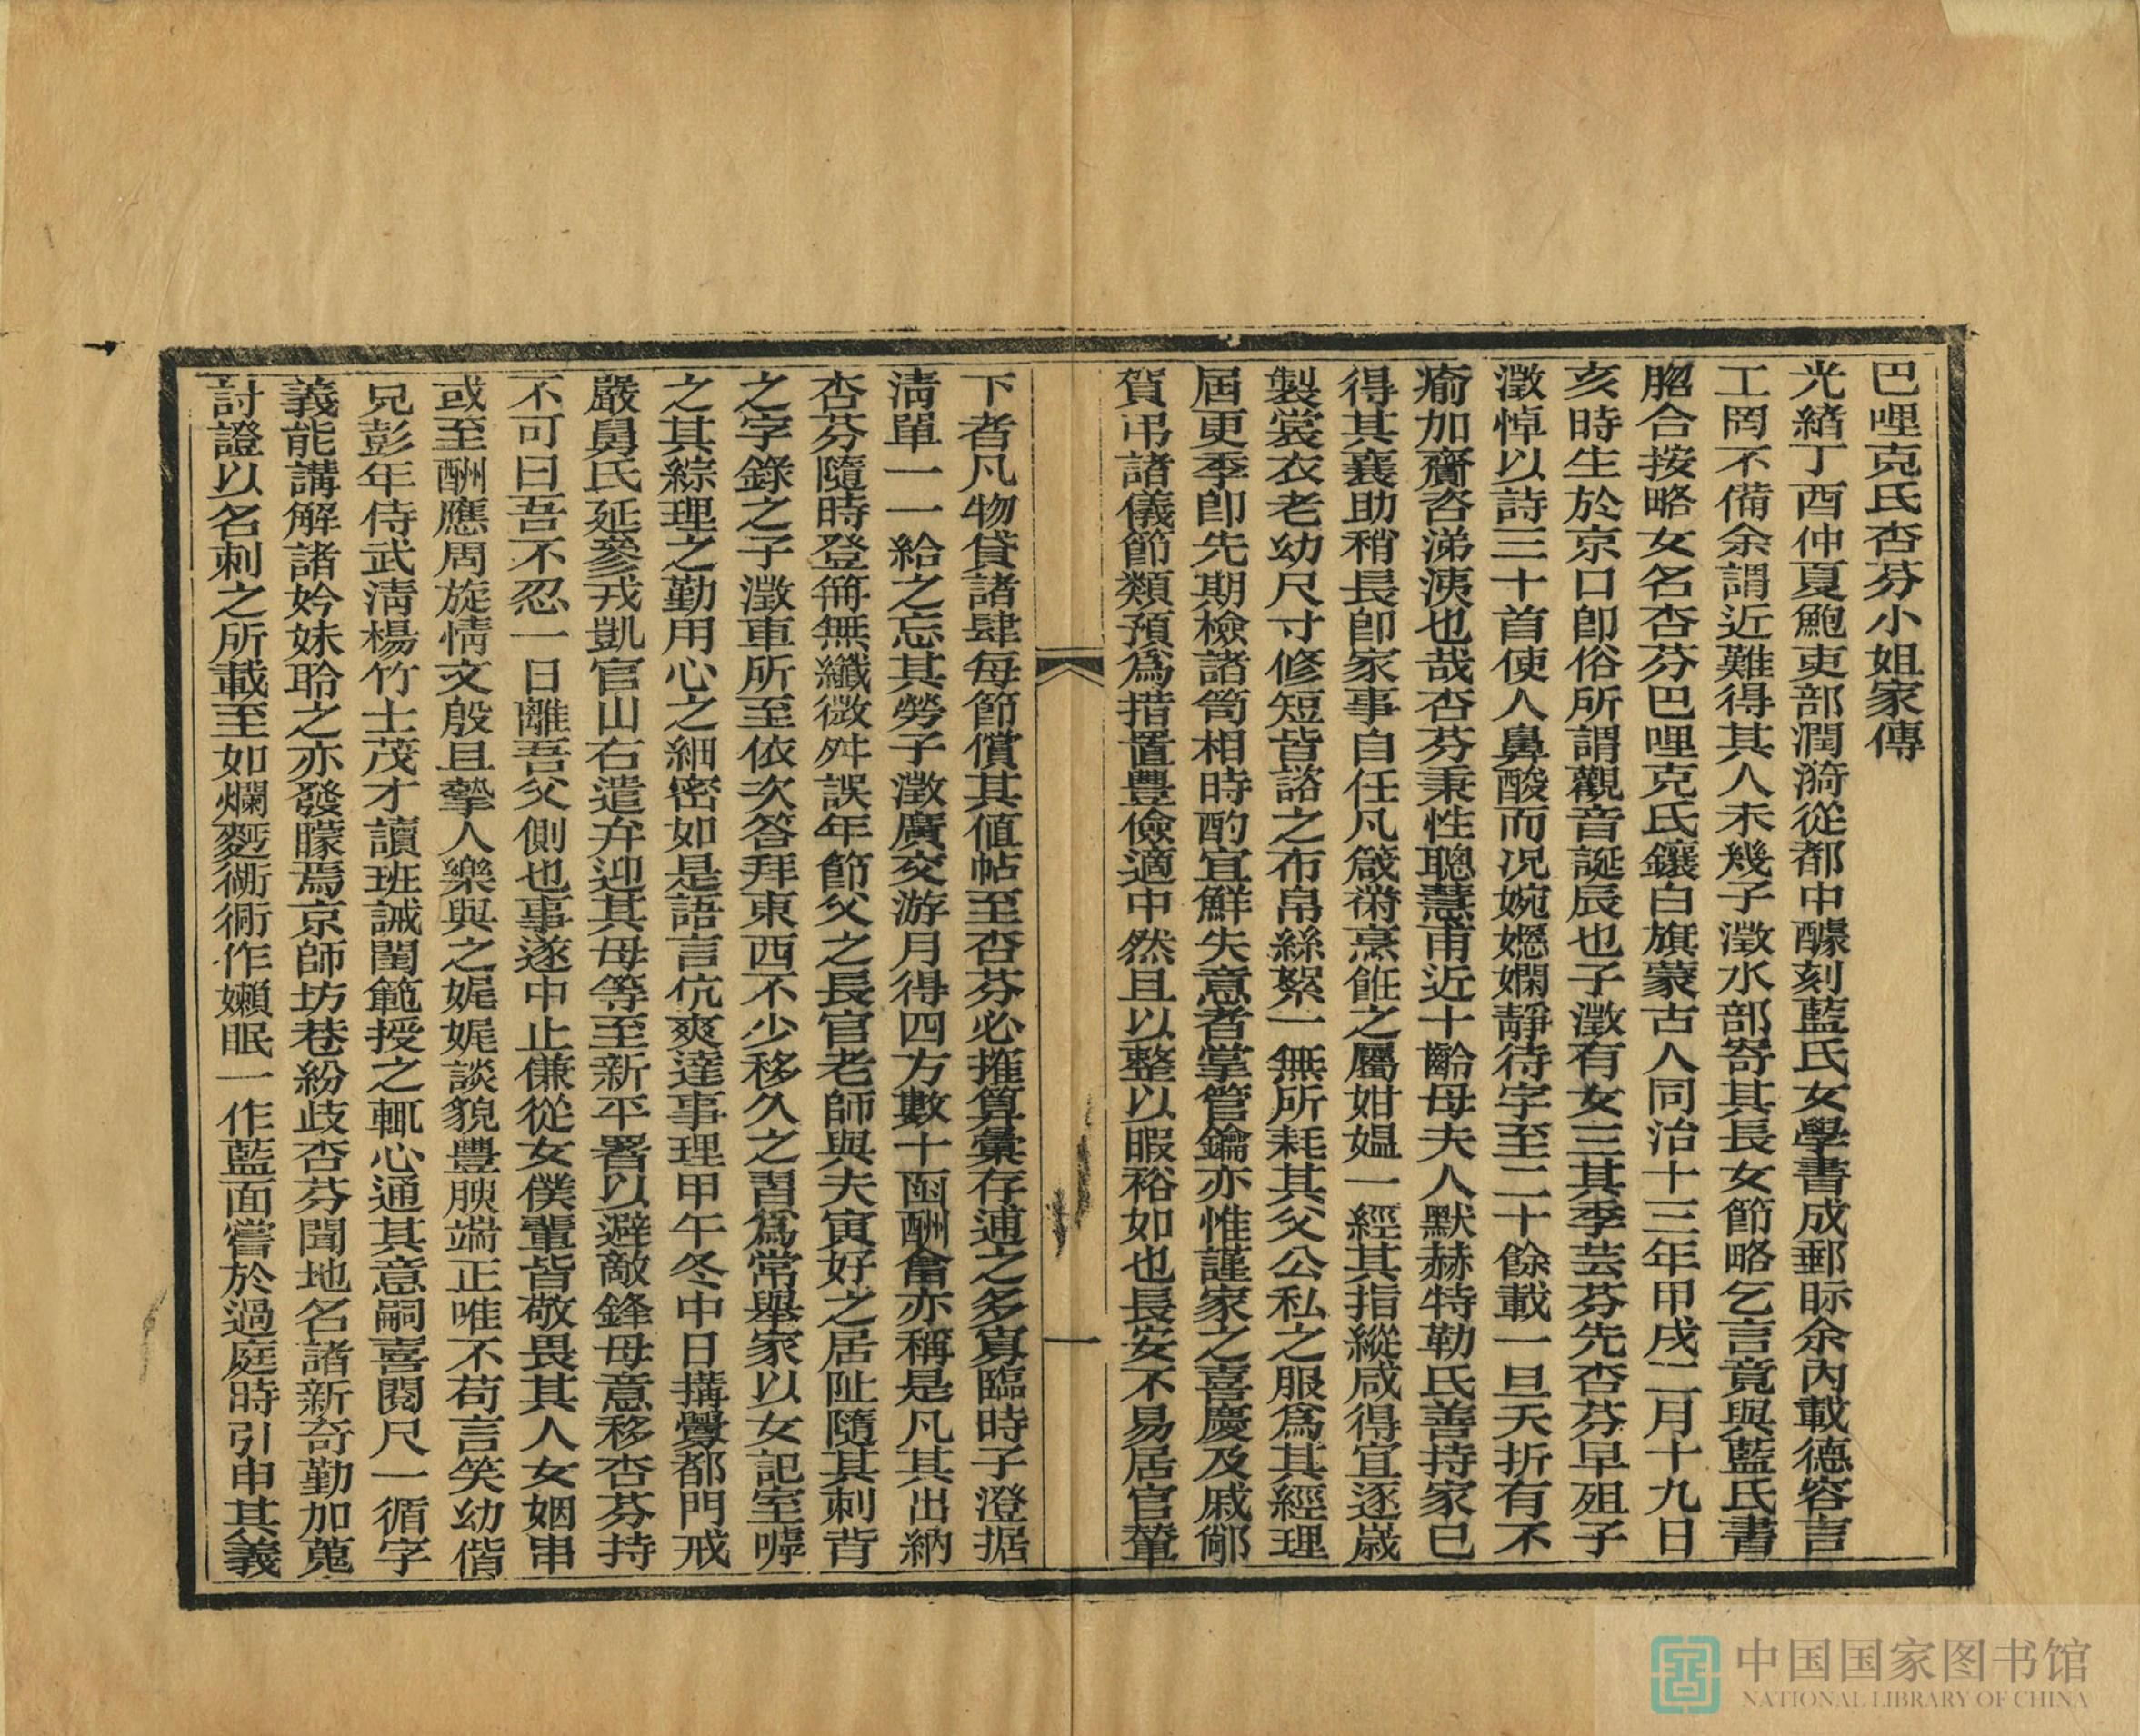 巴哩克氏杏芬小姐家傳
光緒丁酉仲夏鮑吏部潤漪從都中醵刻藍氏女學書成郵眎余內載德容言
工罔不備余謂近難得其人未幾子澂水部寄其長女節略乞言竟與藍氏書
脗合按略女名杏芬巴哩克氏鑲白旗蒙古人同治十三年甲戌二月十九日
亥時生於京口卽俗所謂觀音誕辰也子澂有女三其季芸芬先杏芬早殂子
澂悼以詩三十首使人鼻酸而况婉嫕嫻靜待字至二十餘載一旦夭折有不
瘉加齎咨涕洟也哉杏芬秉性聰慧甫近十齡母夫人默赫特勒氏善持家已
得其襄助稍長卽家事自任凡箴黹烹飪之屬姏媼一經其指縱咸得宜逐歲
製裳衣老幼尺寸修短皆諮之布帛絲絮一無所耗其父公私之服爲其經理
屆更季卽先期檢諸笥相時酌宜鮮失意者掌管鑰亦惟謹家之喜慶及戚鄰
賀弔諸儀節類預爲措置豐儉適中然且以整以暇裕如也長安不易居官輦
一
下者凡物貸諸肆每節償其值帖至杏芬必搉算彙存逋之多寡臨時子澄据
淸單一一給之忘其勞子澂廣交游月得四方數十函酬畣亦稱是凡其出納
杏芬隨時登冊無纖微舛誤年節父之長官老師與夫寅好之居阯隨其刺背
之字錄之子澂車所至依次答拜東西不少移久之習爲常舉家以女記室嘑
之其綜理之勤用心之細密如是語言伉爽達事理甲午冬中日搆釁都門戒
嚴舅氏延參戎凱官山右遣弁迎其母等至新平署以避敵鋒母意移杏芬持
不可曰吾不忍一日離吾父側也事遂中止傔從女僕輩皆敬畏其人女姻串
或至酬應周旋情文殷且摯人樂與之娓娓談貌豐腴端正唯不苟言笑幼偕
兄彭年侍武淸楊竹士茂才讀班誡閨範授之輒心通其意嗣喜閱尺一循字
義能講解諸妗妹聆之亦發矇焉京師坊巷紛歧杏芬聞地名諸新奇勤加蒐
討證以名刺之所載至如爛麪衚衕作嬾眠一作藍面嘗於過庭時引申其義
中国国家图书馆
NATIONAL LIBRARY OF CHINA